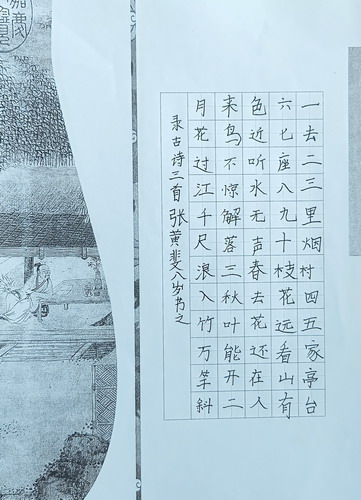 一去二三里烟村四五家亭台
六七座八九十枝花远看山有
色近听水无声春去花还在人
来鸟不惊解落三秋叶能开二
月花过江千尺浪入竹万竿斜
录古诗三首 张黄斐八岁书之
嘉慶